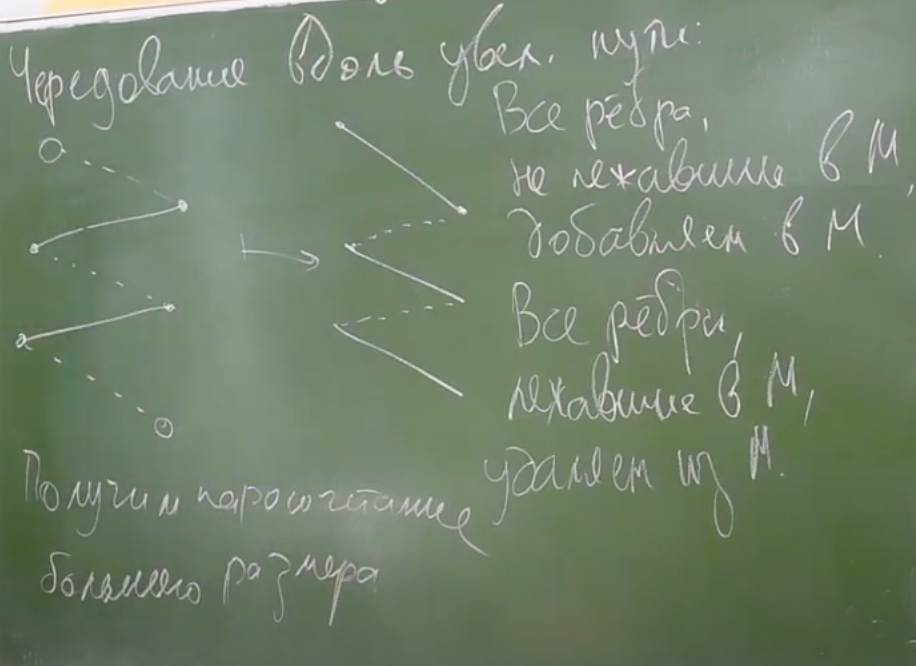 Чередование вдоль увел. пути:
Все рёбра,
не лежавшие в M,
добавляем в M.
Все рёбра,
лежавшие в M,
удаляем из M.
Получим паросочетание
большего размера